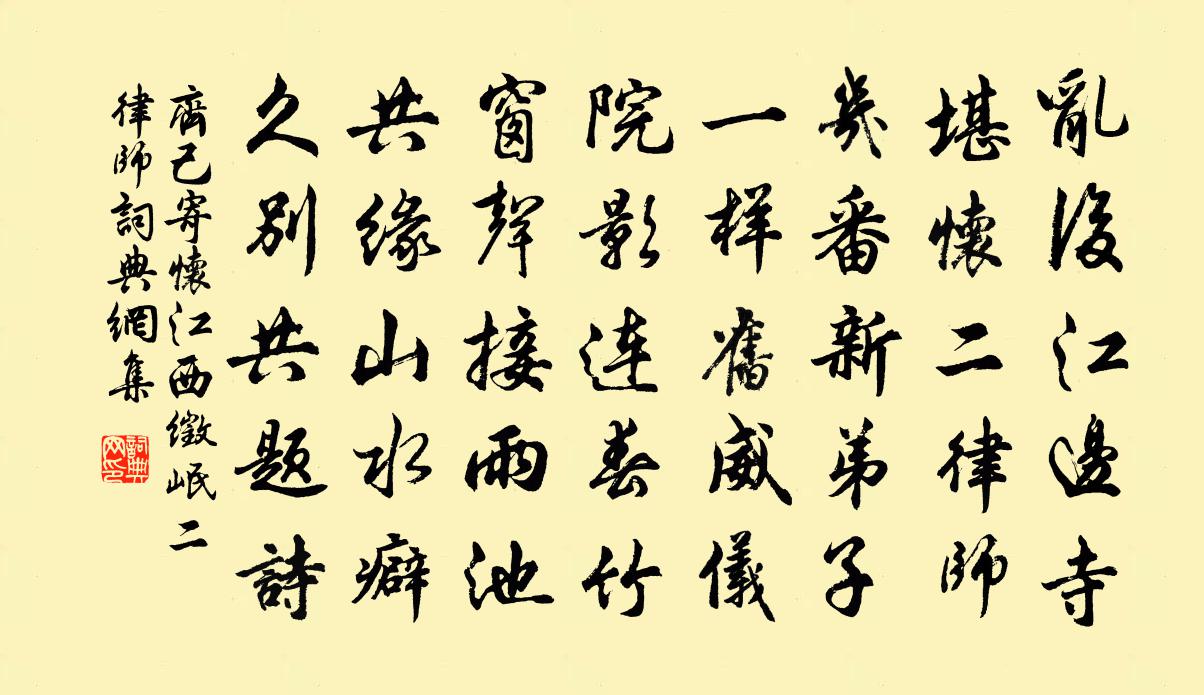 亂後江邊寺
堪懷二律師
幾番新弟子
一样舊威儀
院影連春竹
窗聲接雨池
共緣山水癖
久別共题詩
齊己寄懷江西徵岷二
律師詞典網集
詞典网印